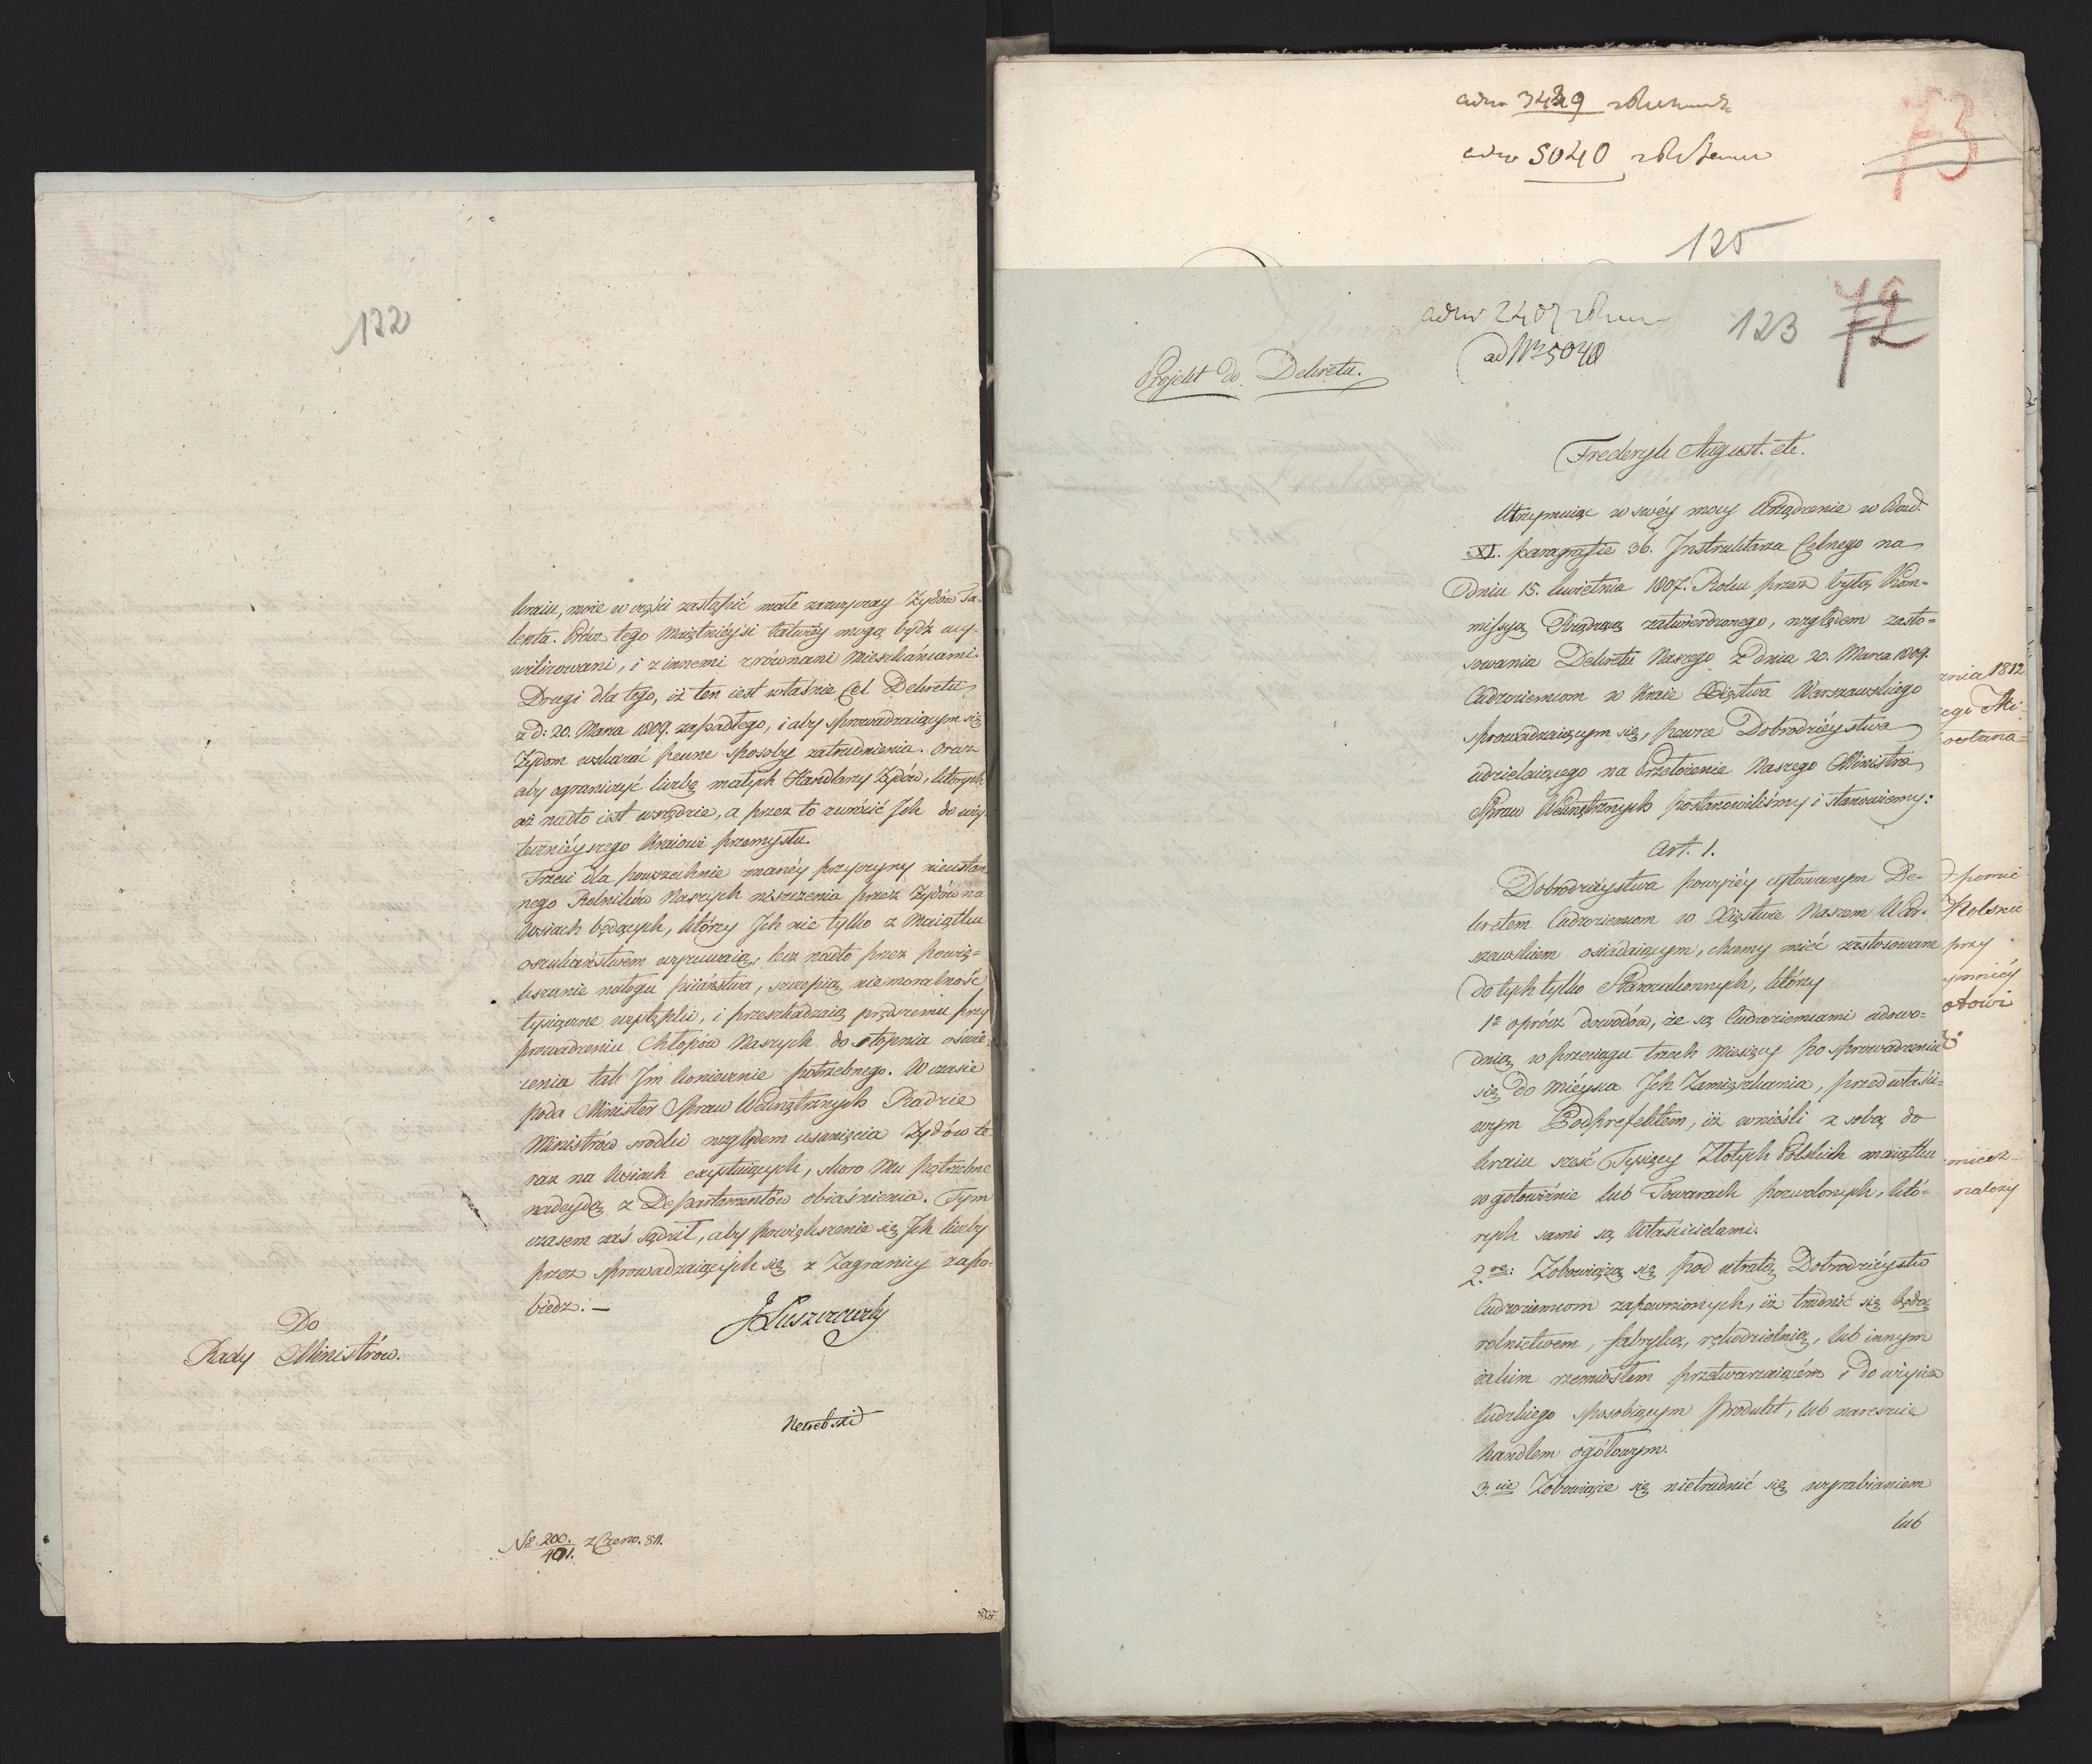 122
kraiu, może w części zastąpić małe zazwyczay Żydów Ta-
lenta. Prócz tego Maiętnieysi łatwiéy mogą bydź ucy-
wilizowani, i z innemi zrównani Mieszkańcami.
Drugi dla tego, iż ten iest właśnie Cel Dekretu
z d: 20. Marca 1809. zapadłego, i aby sprowadzaiącym się
Żydom wskazać pewne sposoby zatrudnienia. oraz
aby ograniczyć liczbę małych Handlarzy Żydów, których
aż nadto iest wszędzie, a przez to zwrócić Ich do uży-
tecznieyszego Kraiowi przemysłu.
Trzeci dla powszechnie znanéy przyczyny nieustan-
nego Rolników Naszych niszczenia przez Żydów na
Wsiach będących, którzy Ich nie tylko z Maiątku
oszukaństwem wyzuwaią, lecz nadto przez powię-
kszanie nałogu piiaństwa, szczepią niemoralność
tysiączne występki, i przeszkadzaią prędszemu przy
prowadzeniu Chłopów Naszych do stopnia oświe-
cenia tak Im koniecznie potrzebnego. W czasie
poda Minister Spraw Wewnętrznych Radzie
Ministrów srodki względem usunięcia Żydów te-
raz na Wsiach exystuiących, skoro Mu potrzebne
nadeydą z Departamentów obiaśnienia. Tym
czasem zaś sądził, aby powiększenie się Ich liczby
przez sprowadzaiących się z Zagranicy zapo-
biedz. —
JŁuszczewsky
Do
Rady Ministrów.
No 200. z Czerw. 811.
401.
3429
5040
73
125
ad No 5040
123
72
Projekt do Dekretu.
Frederyk August. etc.
Utrzymuiąc w swéy mocy Urządzenie w Rozd.
XI. paragrafie 36. Instruktarza Celnego na
dniu 15. kwietnia 1807. Roku przez byłą Kom-
missyą Rządzącą zatwierdzonego, względem zasto-
sowania Dekretu Naszego z dnia 20. Marca 1809.
Cudzoziemcom w Kraie Xięstwa Warszawskiego
sprowadzaiącym się, pewne Dobrodzieystwa
udzielaiącego na Przełożenie Naszego Ministra
Spraw Wewnętrznych postanowiliśmy i stanowiemy:
Art. 1.
Dobrodzieystwa powyżéy cytowanym De-
kretem Cudzoziemcom w Xięstwie Naszem War-
szawskiem osiadaiącym, chcemy mieć zastosowane
do tych tylko Starozakonnych, którzy
1o oprócz dowodów, że są Cudzoziemcami udowo-
dnią w przeciągu trzech miesięcy po sprowadzeniu
się do mieysca Ich Zamieszkania, przed właści-
wym Podprefektem, iż wnieśli z sobą do
kraiu sześć Tysięcy Złotych Polskich maiątku
w gotowiznie lub Towarach pozwolonych, któ-
rych sami są Właścicielami.
2re: Zobowiążą się pod utratą Dobrodzieystw
Cudzoziemcom zapewnionych, iż trudnić się będą
rolnictwem, fabryką, rękodzielnią, lub innym
iakim rzemiosłem przetwarzaiącém i do użycia
ludzkiego sposobiącym Produkt, lub nareszcie
handlem ogółowym.
3cie Zobowiążą się nietrudnić się wyrabianiem
lub
1812